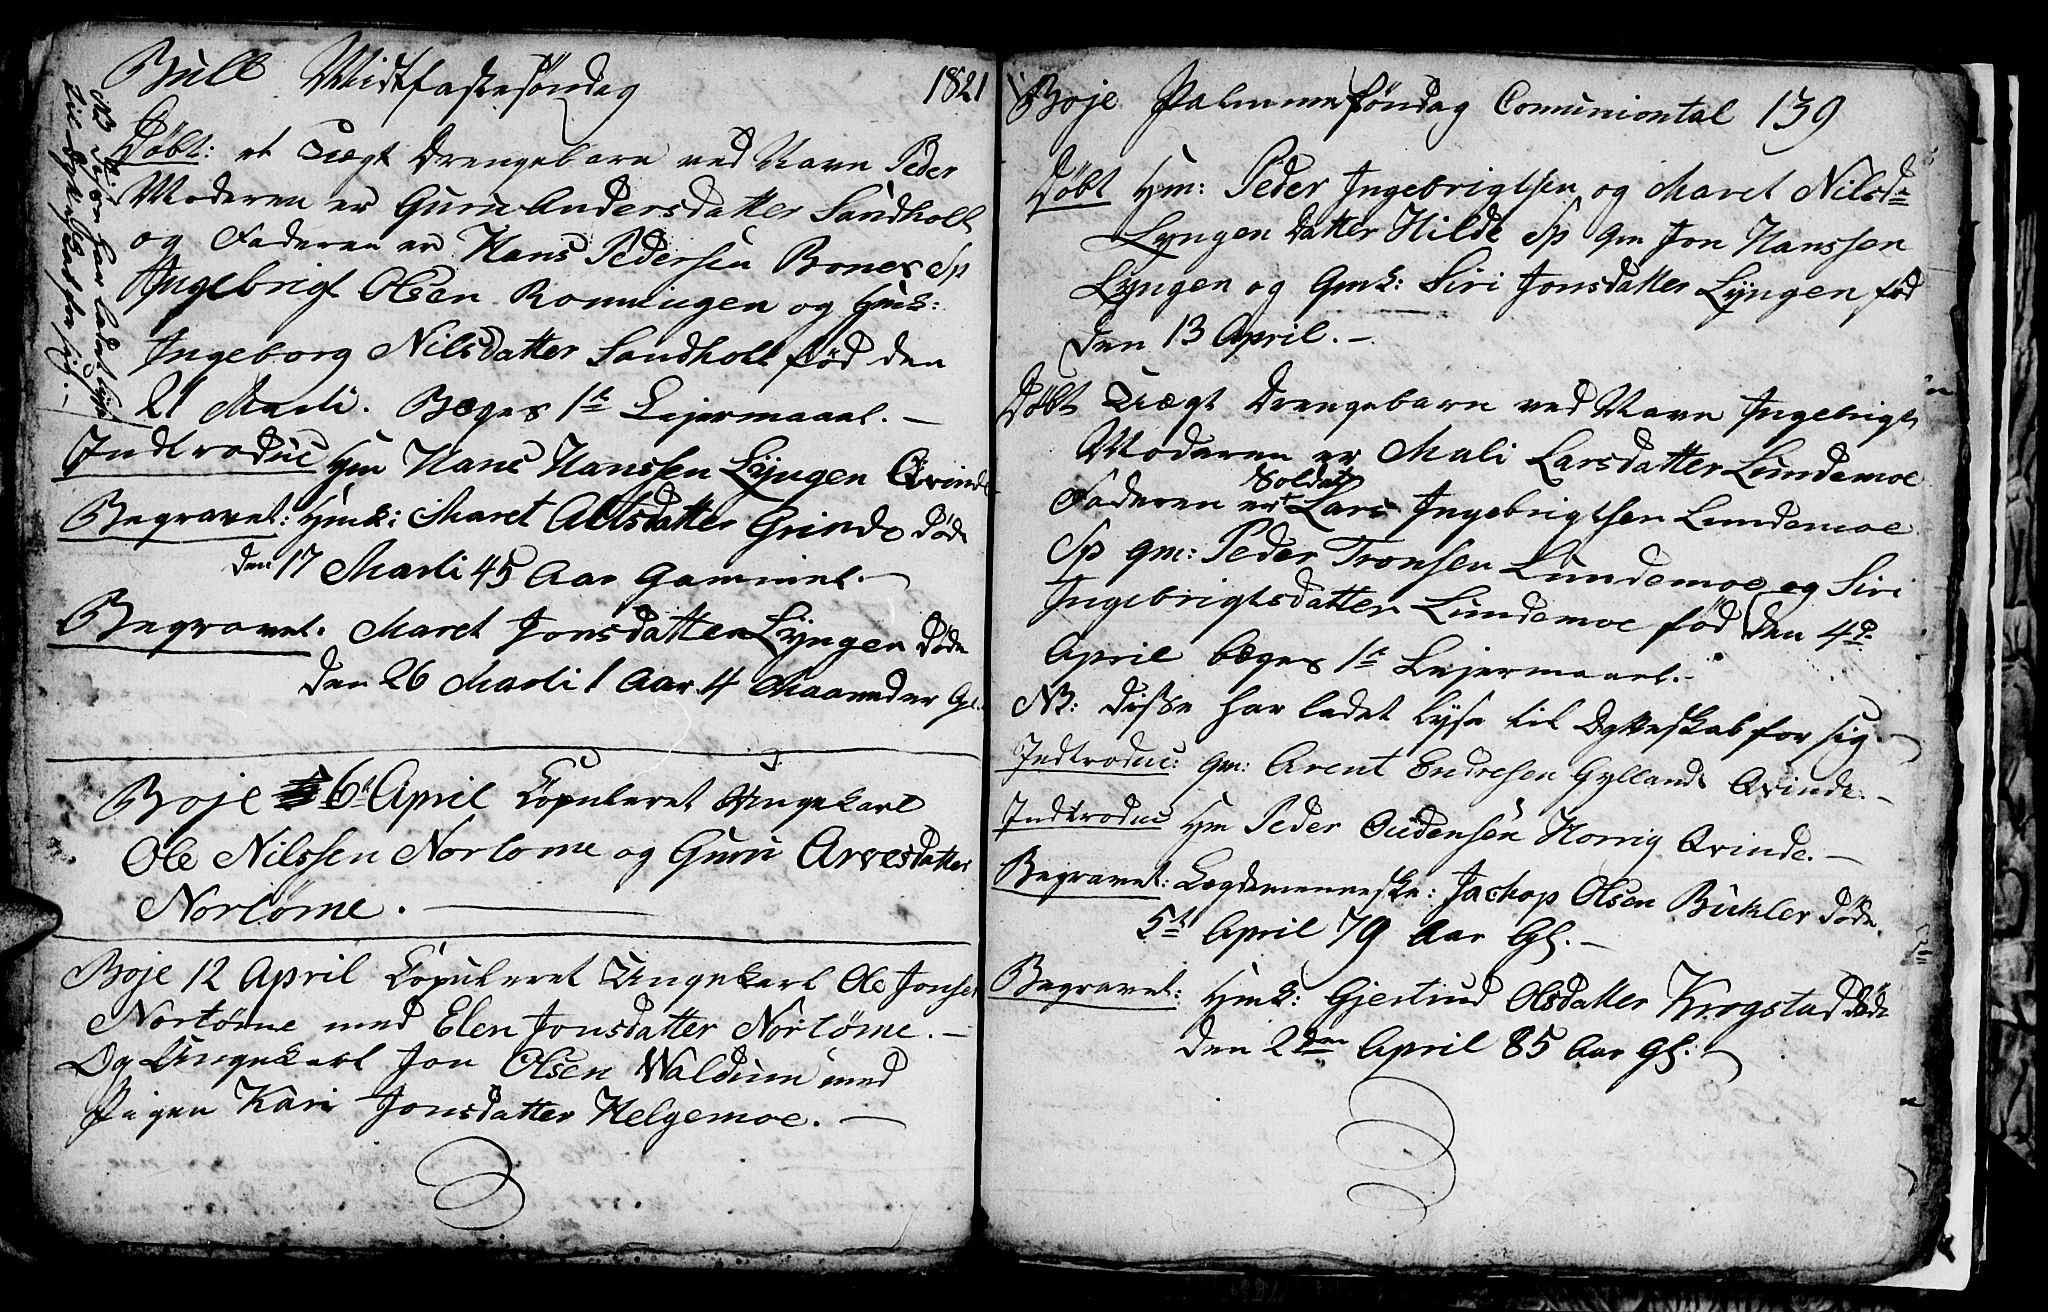 Bull Midtfastesøndag 1821
Døbt: et Uægt Drengebarn ved Navn Peder
Moderen er Guru Andersdatter Sandholt
og Faderen er Hans Pedersen Bones Sp
Ingebrigt Olsen Ronningen og Hmk:
Ingeborg Nilsdatter Sandholt fød den
21 Marti. Bæges 1te Lejermaaal. —
NB Disse har ladet lyse
til Egteskab for sig. —
Indtroduc Hm Hans Hanssen Lÿngen Qvinde
Begravet: Hmk: Maret Allsdatter Grinde døde
den 17 Marti 45 Aar Gammel. —
Begravet. Maret Jonsdatter Lÿngen døde
den 26 Marti 1 Aar 4 Maaneder Gl.
Boje 6te April Copuleret Ungekarl
Ole Nilssen Nortome og Guru Arvesdatter
Nortøme. —
Boje 12 April Copuleret Ungekarl Ole Jonsen
Nortøme med Elen Jonsdatter Nortøme. —
Og Ungekarl Jon Olsen Waldum med
Pigen Kari Jonsdatter Helgemoe. —
Boje Palmmesøndag Comuniontal 139
Døbt Hm: Peder Ingebrigtsen og Maret Nilsdr
Lyngen Datter Hilde Sp gm Jon Hanssen
Lyngen og Gmk: Siri Jonsdatter Lÿngen fød
den 13 April. —
Døbt Uægt Drengebarn ved Navn Ingebrigt
Moderen er Mali Larsdatter Lundemoe
Faderen er Soldat Lars Ingebrigtsen Lundemoe
Sp gm: Peder Tronsen Lundemoe og Siri
Ingebrigtsdatter Lundemoe fød den 4de
April bæges 1te Lejermaael. —
NB: disse har ladet lyse til Egteskab for sig. —
Indtroduc: gm: Arent Endresen Gyllands Qvinde. —
Indtroduc Hm Peder Oudensen Horrig Qvinde. —
Begravet: Lægdemenneske: Jachop Olsen Bukler døde
5te April 79 Aar Gl. —
Begravet: Hmk: Gjertrud Olsdatter Krogstad døde
den 2den April 85 Aar Gl. —